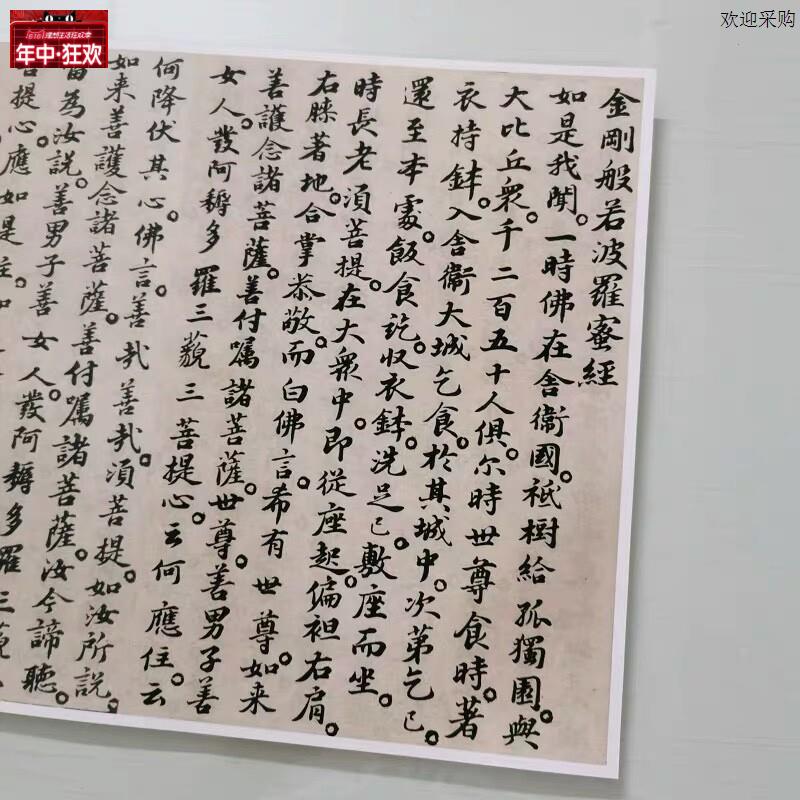 欢迎采购
618理想生活狂欢季
年中·狂欢
金剛般若波羅蜜經
如是我聞。一時佛在舍衞國。祇樹給孤獨園。與
大比丘衆。千二百五十人俱。尔時世尊食時。著
衣持鉢。入舍衞大城乞食。於其城中。次第乞已。
還至本處。飯食訖。收衣鉢。洗足已。敷座而坐。
時長老湏菩提。在大衆中。即從座起。偏袒右肩。
右膝著地。合掌恭敬。而白佛言。希有世尊。如来
善護念諸菩薩。善付嘱諸菩薩。世尊。善男子善
女人。發阿耨多羅三藐三菩提心。云何應住。云
何降伏其心。佛言。善㢤善㢤。湏菩提。如汝所說。
如来善護念諸菩薩。善付嘱諸菩薩。汝今諦聽。
當為汝說。善男子善女人。發阿耨多羅三藐
菩提心。應如是住。如